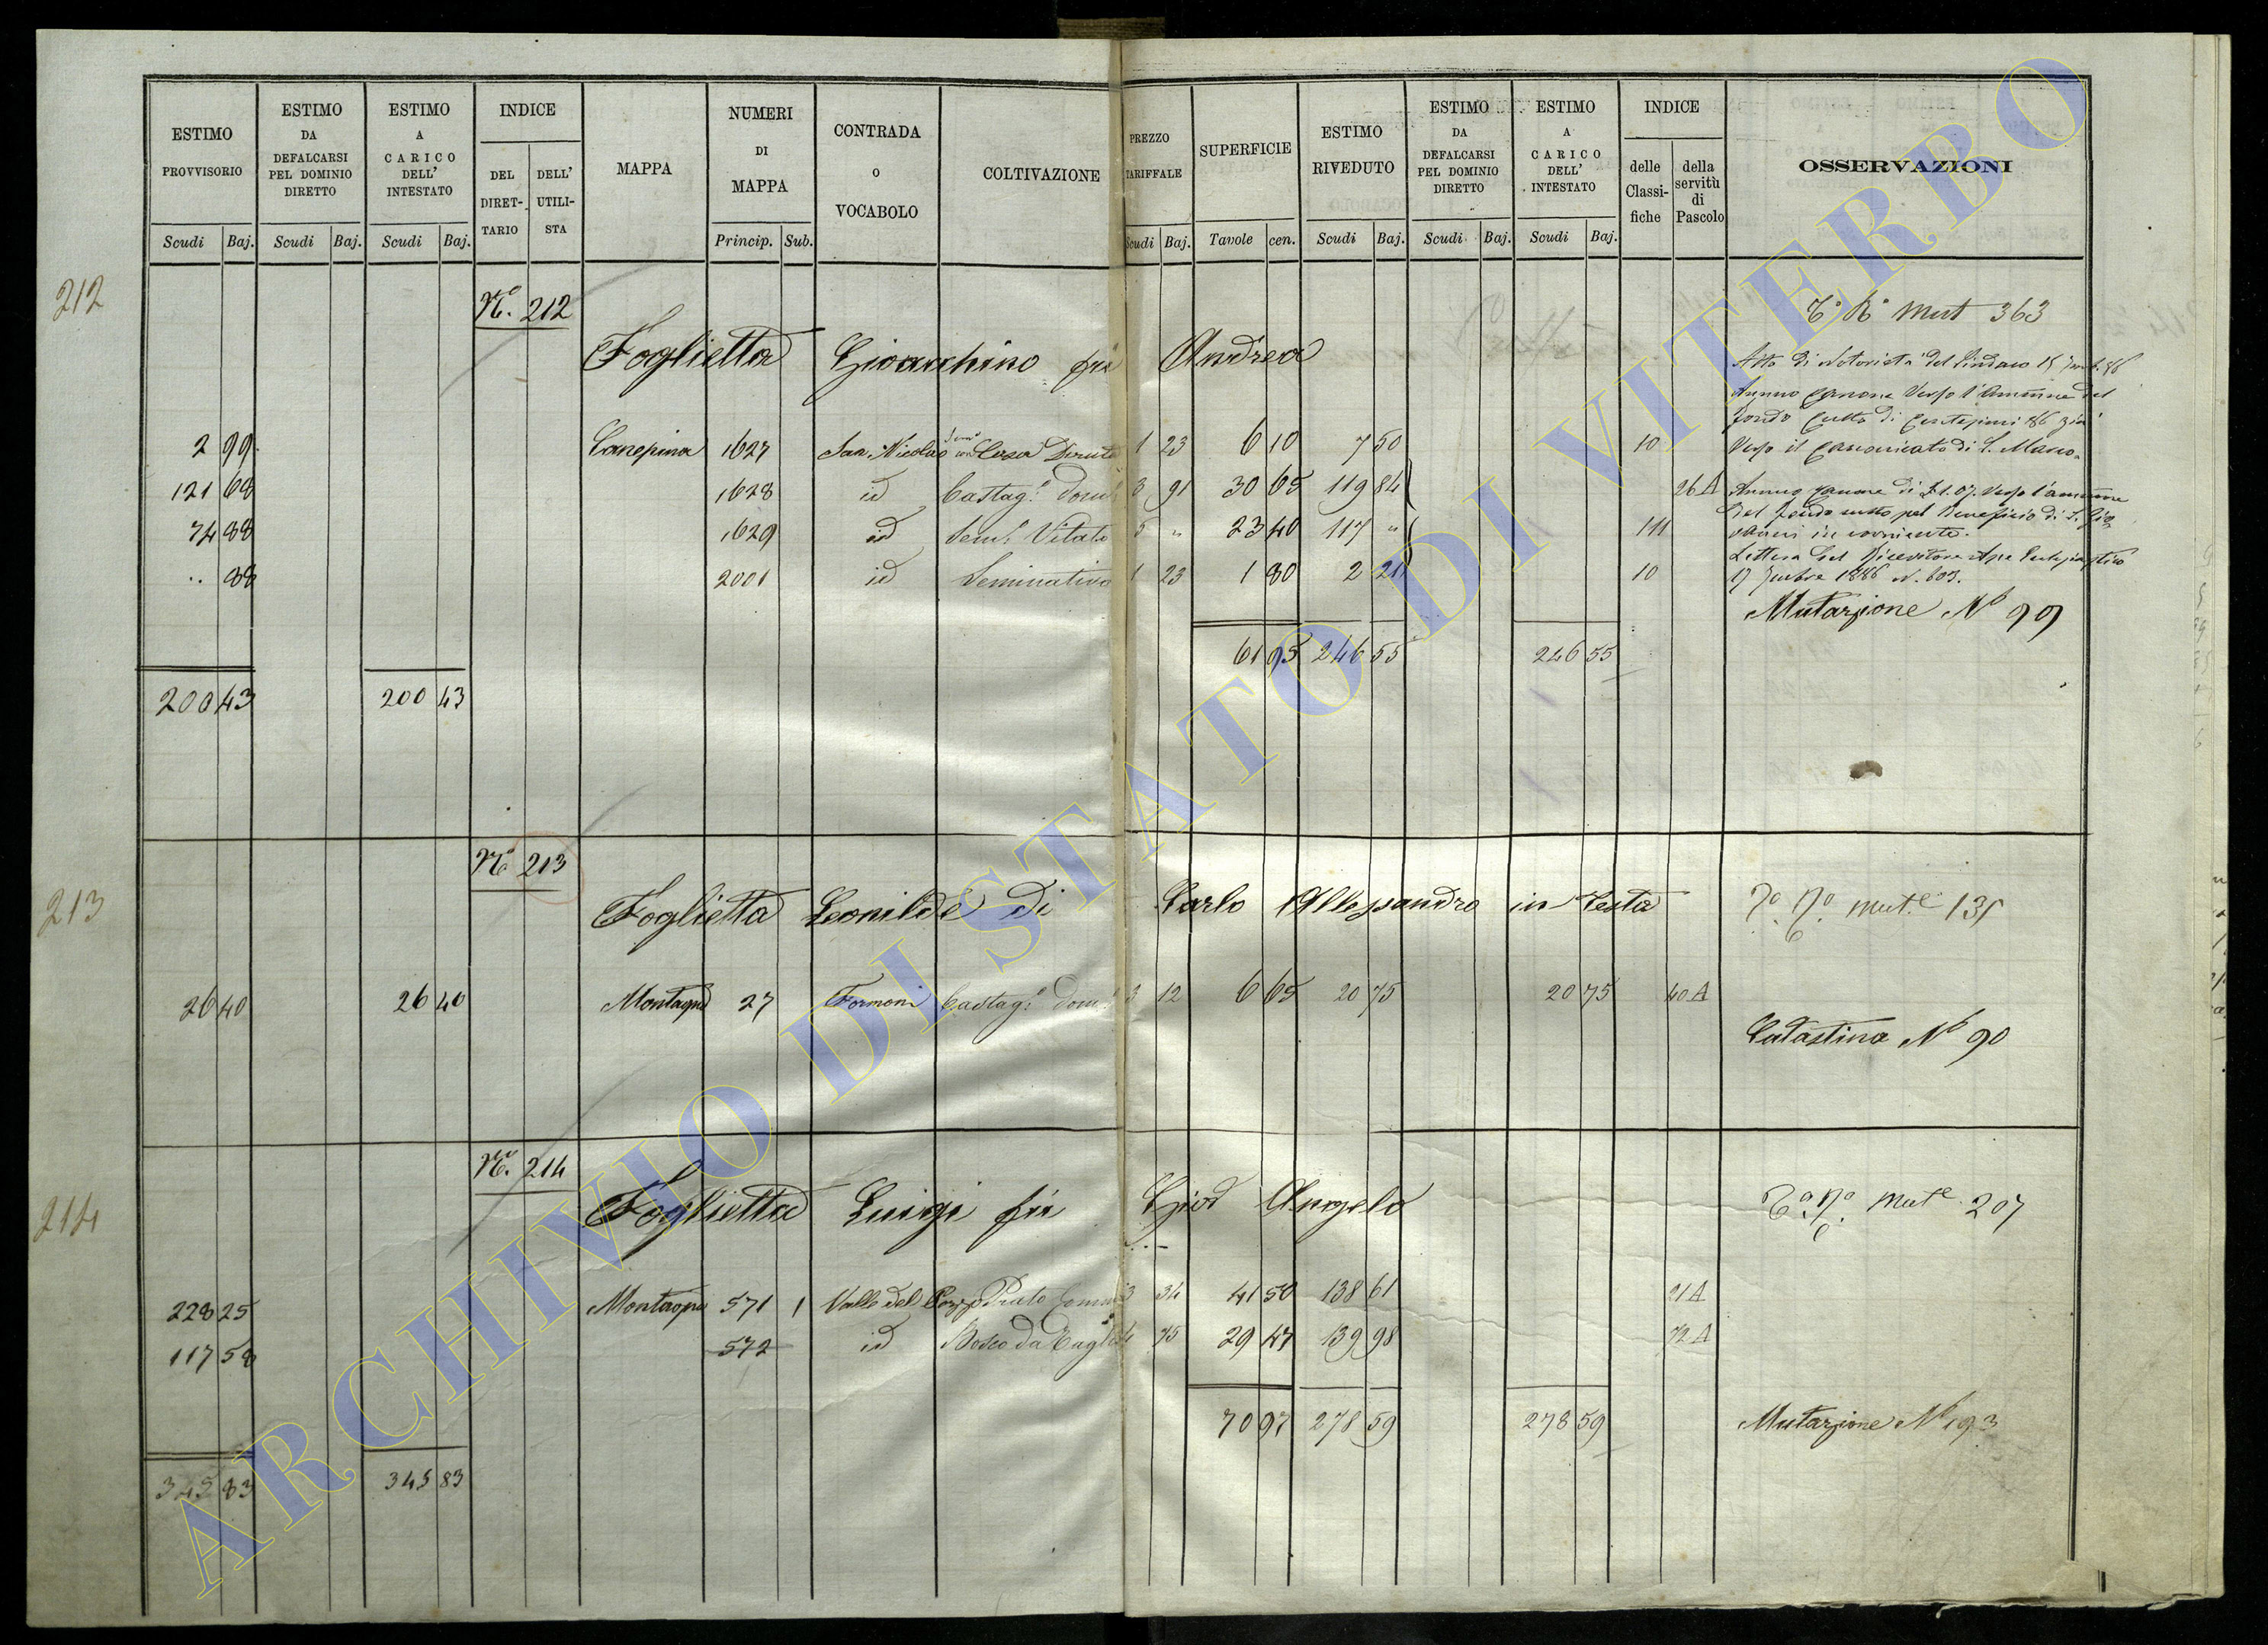 ESTIMO PROVVISORIO | ESTIMO DA DEFALCARSI PEL DOMINIO DIRETTO | ESTIMO A CARICO DELL' INTESTATO | INDICE DEL DIRET-TARIO | DELL' UTILI-STA | MAPPA | NUMERI DI MAPPA | CONTRADA O VOCABOLO | COLTIVAZIONE | PREZZO TARIFFALE | SUPERFICIE | ESTIMO RIVEDUTO | ESTIMO DA DEFALCARSI PEL DOMINIO DIRETTO | ESTIMO A CARICO DELL' INTESTATO | INDICE delle Classi-fiche | della servitù di Pascolo | OSSERVAZIONI
Scudi Baj. Scudi Baj. Scudi Baj. Princip. Sub. Scudi Baj. Tavole cen. Scudi Baj. Scudi Baj. Scudi Baj.
212
N.º 212
Mut 363
Foglietta Gioacchino fu Andrea
Atto di Notorietà del Sindaco
Annuo Canone Verso l'Ammne del
fondo Culto di
Verso il Canonicato di S. Marco
2 99 Canepina 1627 San Nicolao Semo con Casa Diruta 1 23 6 10 7 50 10
121 68 1628 id Castag. dom. 3 91 30 65 119 84 26 A
Annuo Canone di verso l'ammne
del fondo culto pel Beneficio di S. Gio
74 88 1629 id Semo Vitato 5 " 23 40 117 " 111
.. 88 2001 id Seminativo 1 23 1 80 2 21 10
Lettera del Ricevitore
1886 N. 603.
Mutazione No 99
61 95 246 55 246 55
200 43 200 43
213
No 213
Foglietta Leonilde di Carlo Alessandro in Testa
mut.e 135
26 40 26 40 Montagna 27 Formoni Castag. dom. 3 12 6 65 20 75 20 75 40 A
Catastina No 90
214
No. 214
Foglietta Luigi fu Gio Angelo
Mut.e 207
228 25 Montagna 571 1 Valle del Pozzo Prato 3 34 41 50 138 61 21 A
117 58 572 id Bosco da Taglio 4 75 29 47 139 98 72 A
70 97 278 59 278 59
Mutazione No 193
345 83 345 83
ARCHIVIO DI STATO DI VITERBO